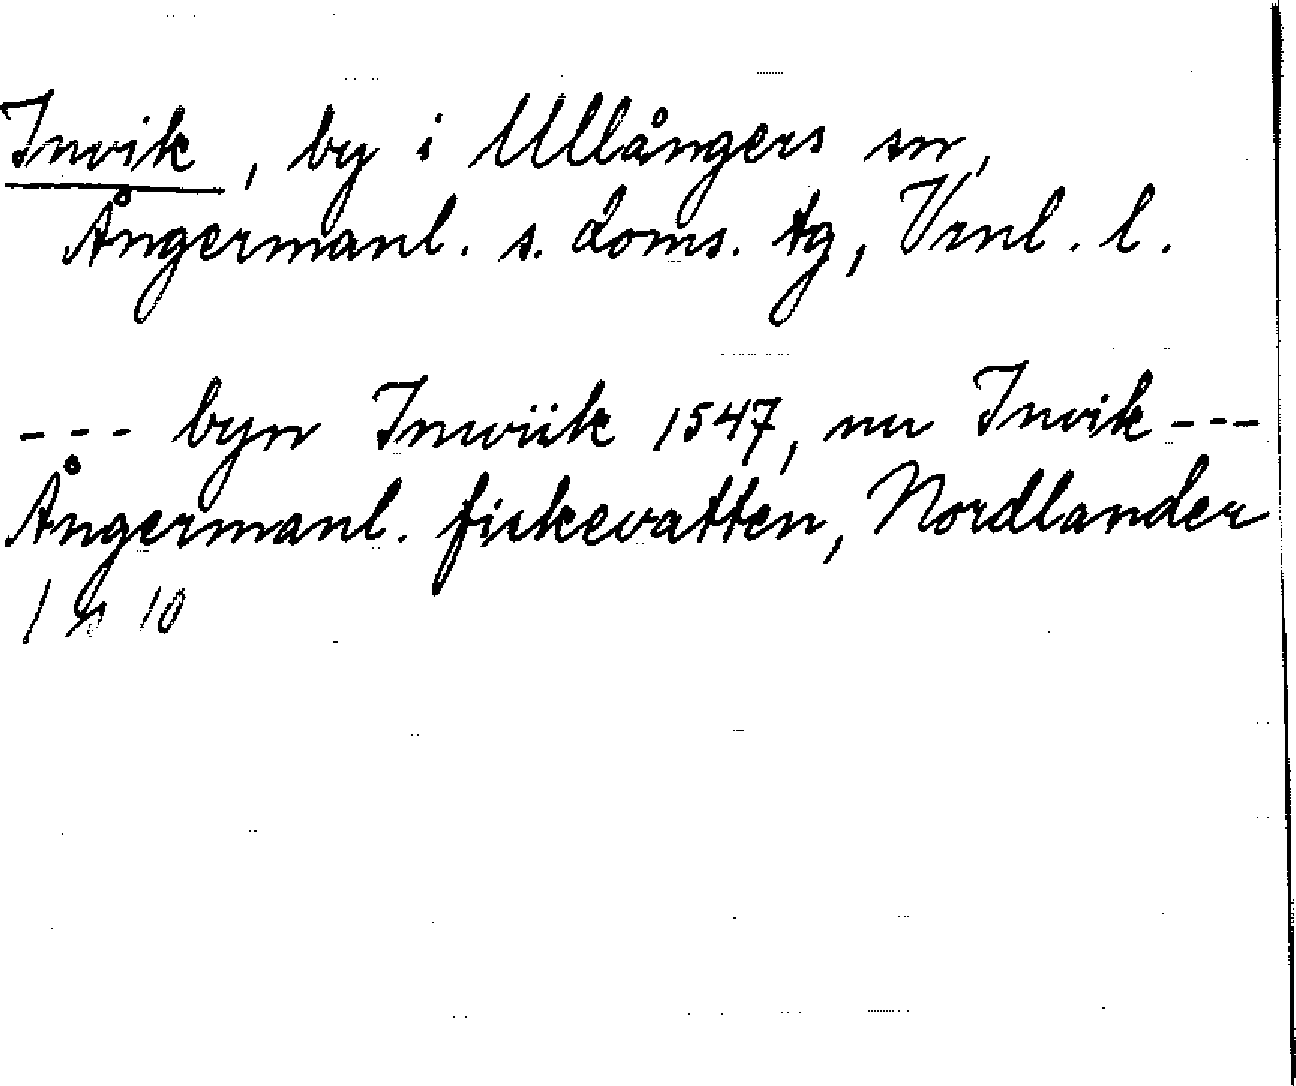 Invik, by i Ullångers sn,
Ångermanl. s. doms. tg, Vrnl. l.
--- byn Inwiik 1547, nu Invik ---
Ångermanl. fiskevatten, Nordlander
1 s 10